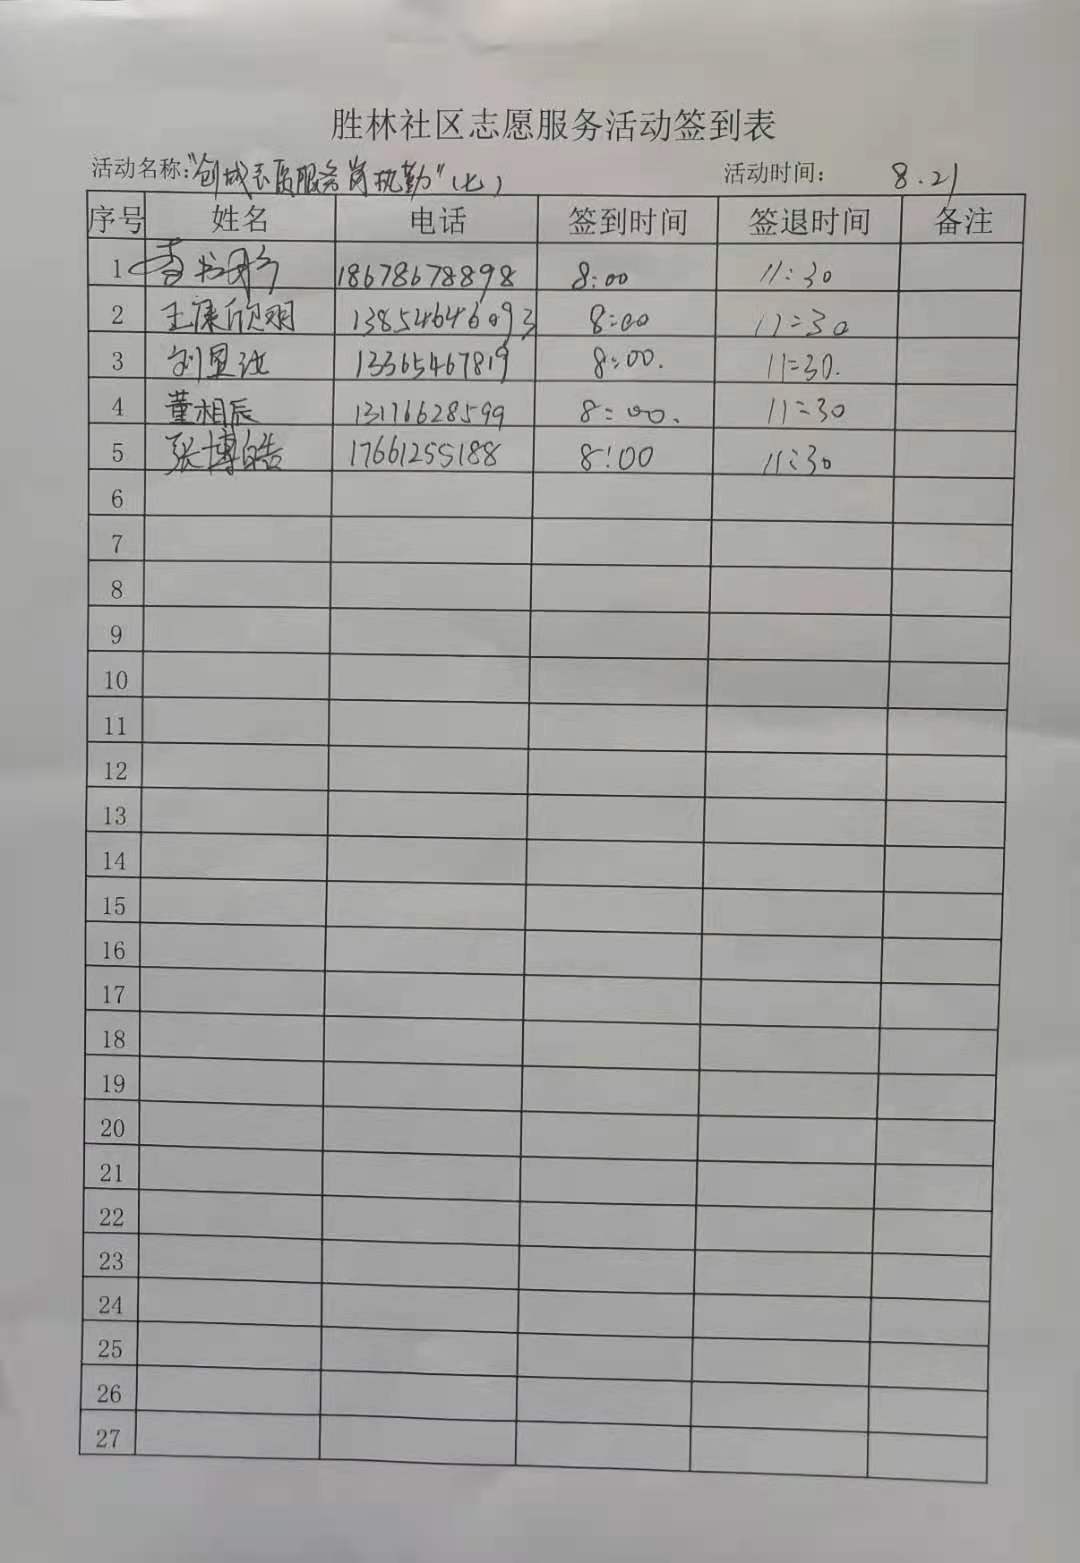 胜林社区志愿服务活动签到表
活动名称:"创城志愿服务岗执勤"(七) 活动时间: 8.21
序号 姓名 电话 签到时间 签退时间 备注
1 18678678898 8:00 11:30
2 王康欣明 13854646093 8:00 11:30
3 刘显 13365467819 8:00. 11:30.
4 董相辰 13176628599 8:00. 11:30
5 张博皓 17661255188 8:00 11:30
6
7
8
9
10
11
12
13
14
15
16
17
18
19
20
21
22
23
24
25
26
27